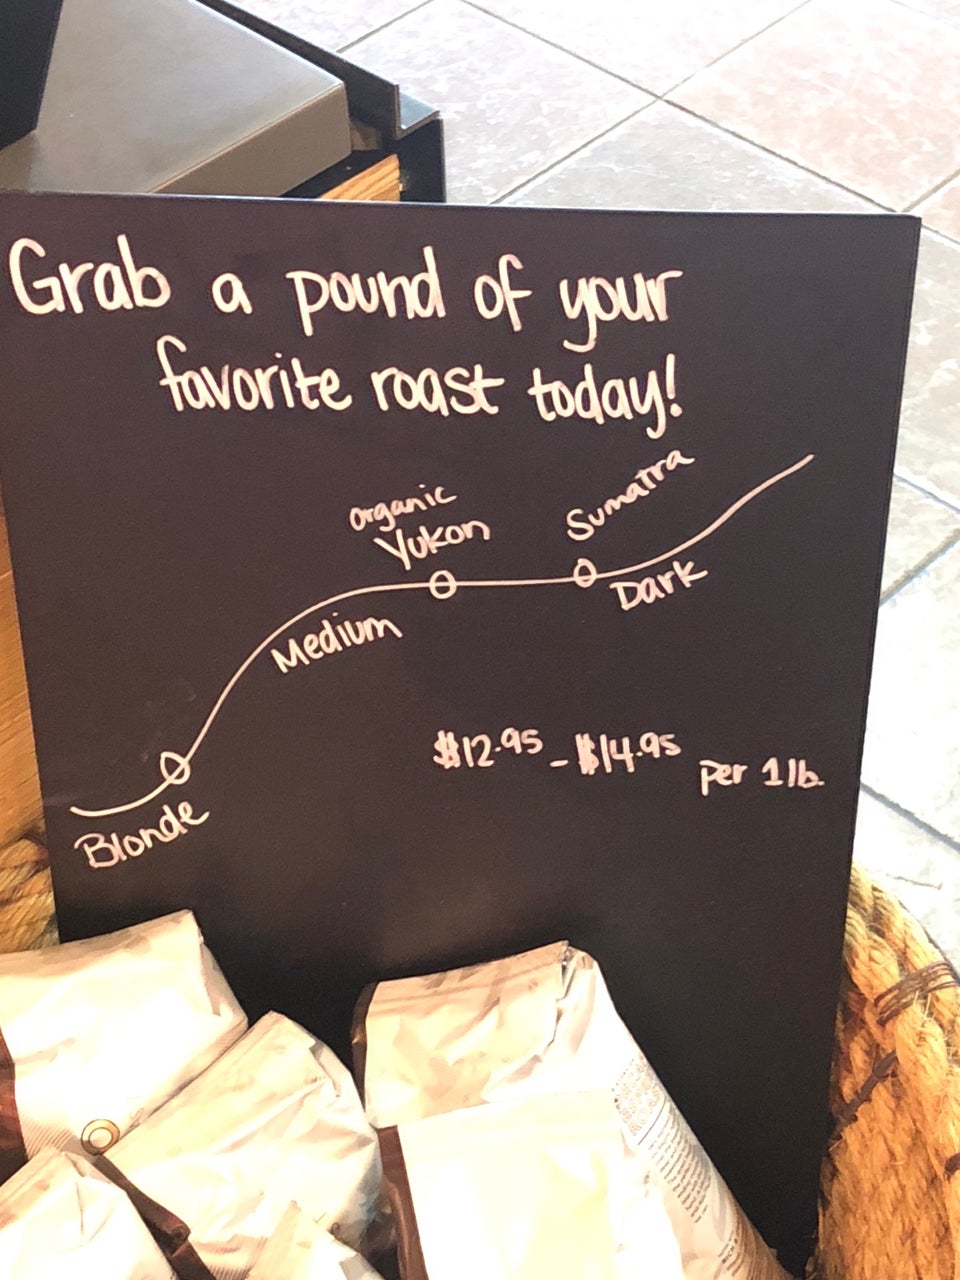 Grab a pound of your
favorite roast today!
Sumatra
organic
Yukon
Dark
Medium
$12.95 - $14.95 per 1 lb.
Blonde